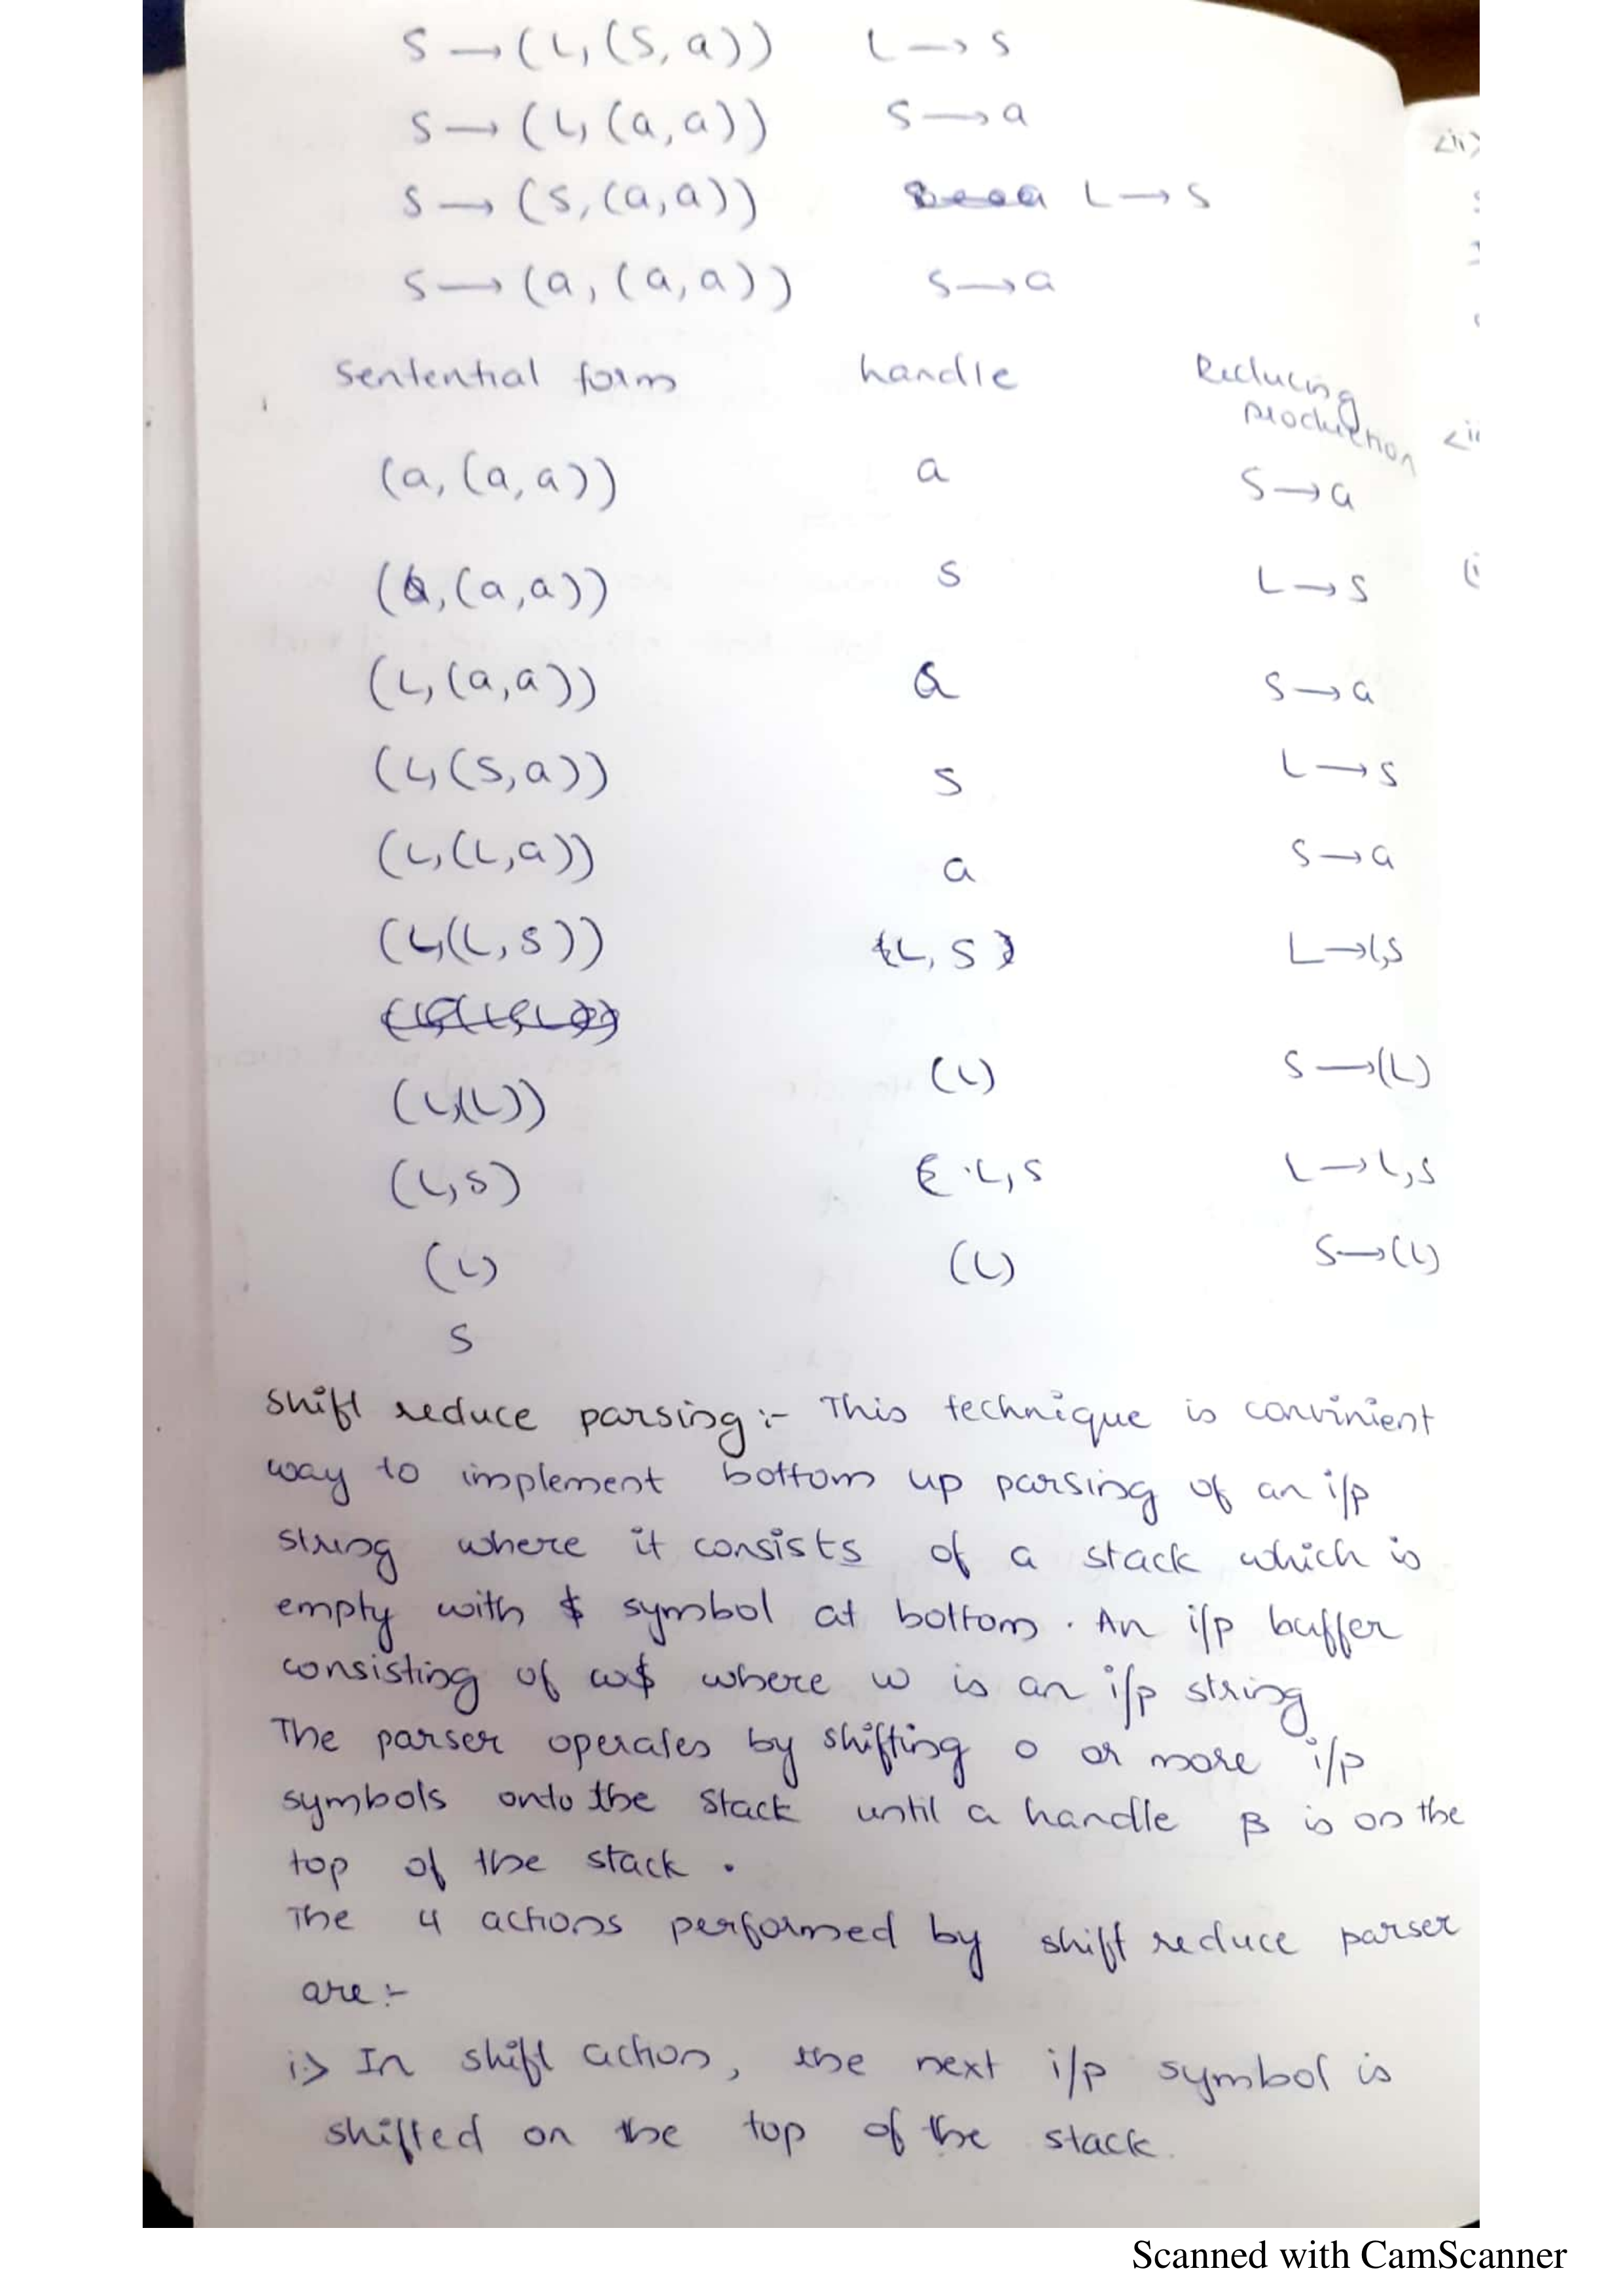 S → (L, (S, a))   L → S
S → (L, (a, a))   S → a
S → (S, (a, a))   L → S
S → (a, (a, a))   S → a
Sentential form   handle   Reducing production
(a, (a, a))   a   S → a
(S, (a, a))   S   L → S
(L, (a, a))   a   S → a
(L, (S, a))   S   L → S
(L, (L, a))   a   S → a
(L, (L, S))   L, S   L → L, S
(L, (L))   (L)   S → (L)
(L, S)   L, S   L → L, S
(L)   (L)   S → (L)
S
Shift reduce parsing :- This technique is convinient
way to implement bottom up parsing of an i/p
string where it consists of a stack which is
empty with $ symbol at bottom. An i/p buffer
consisting of w$ where w is an i/p string
The parser operates by shifting 0 or more i/p
symbols onto the stack until a handle β is on the
top of the stack.
The 4 actions performed by shift reduce parser
are :-
i> In shift action, the next i/p symbol is
shifted on the top of the stack.
Scanned with CamScanner